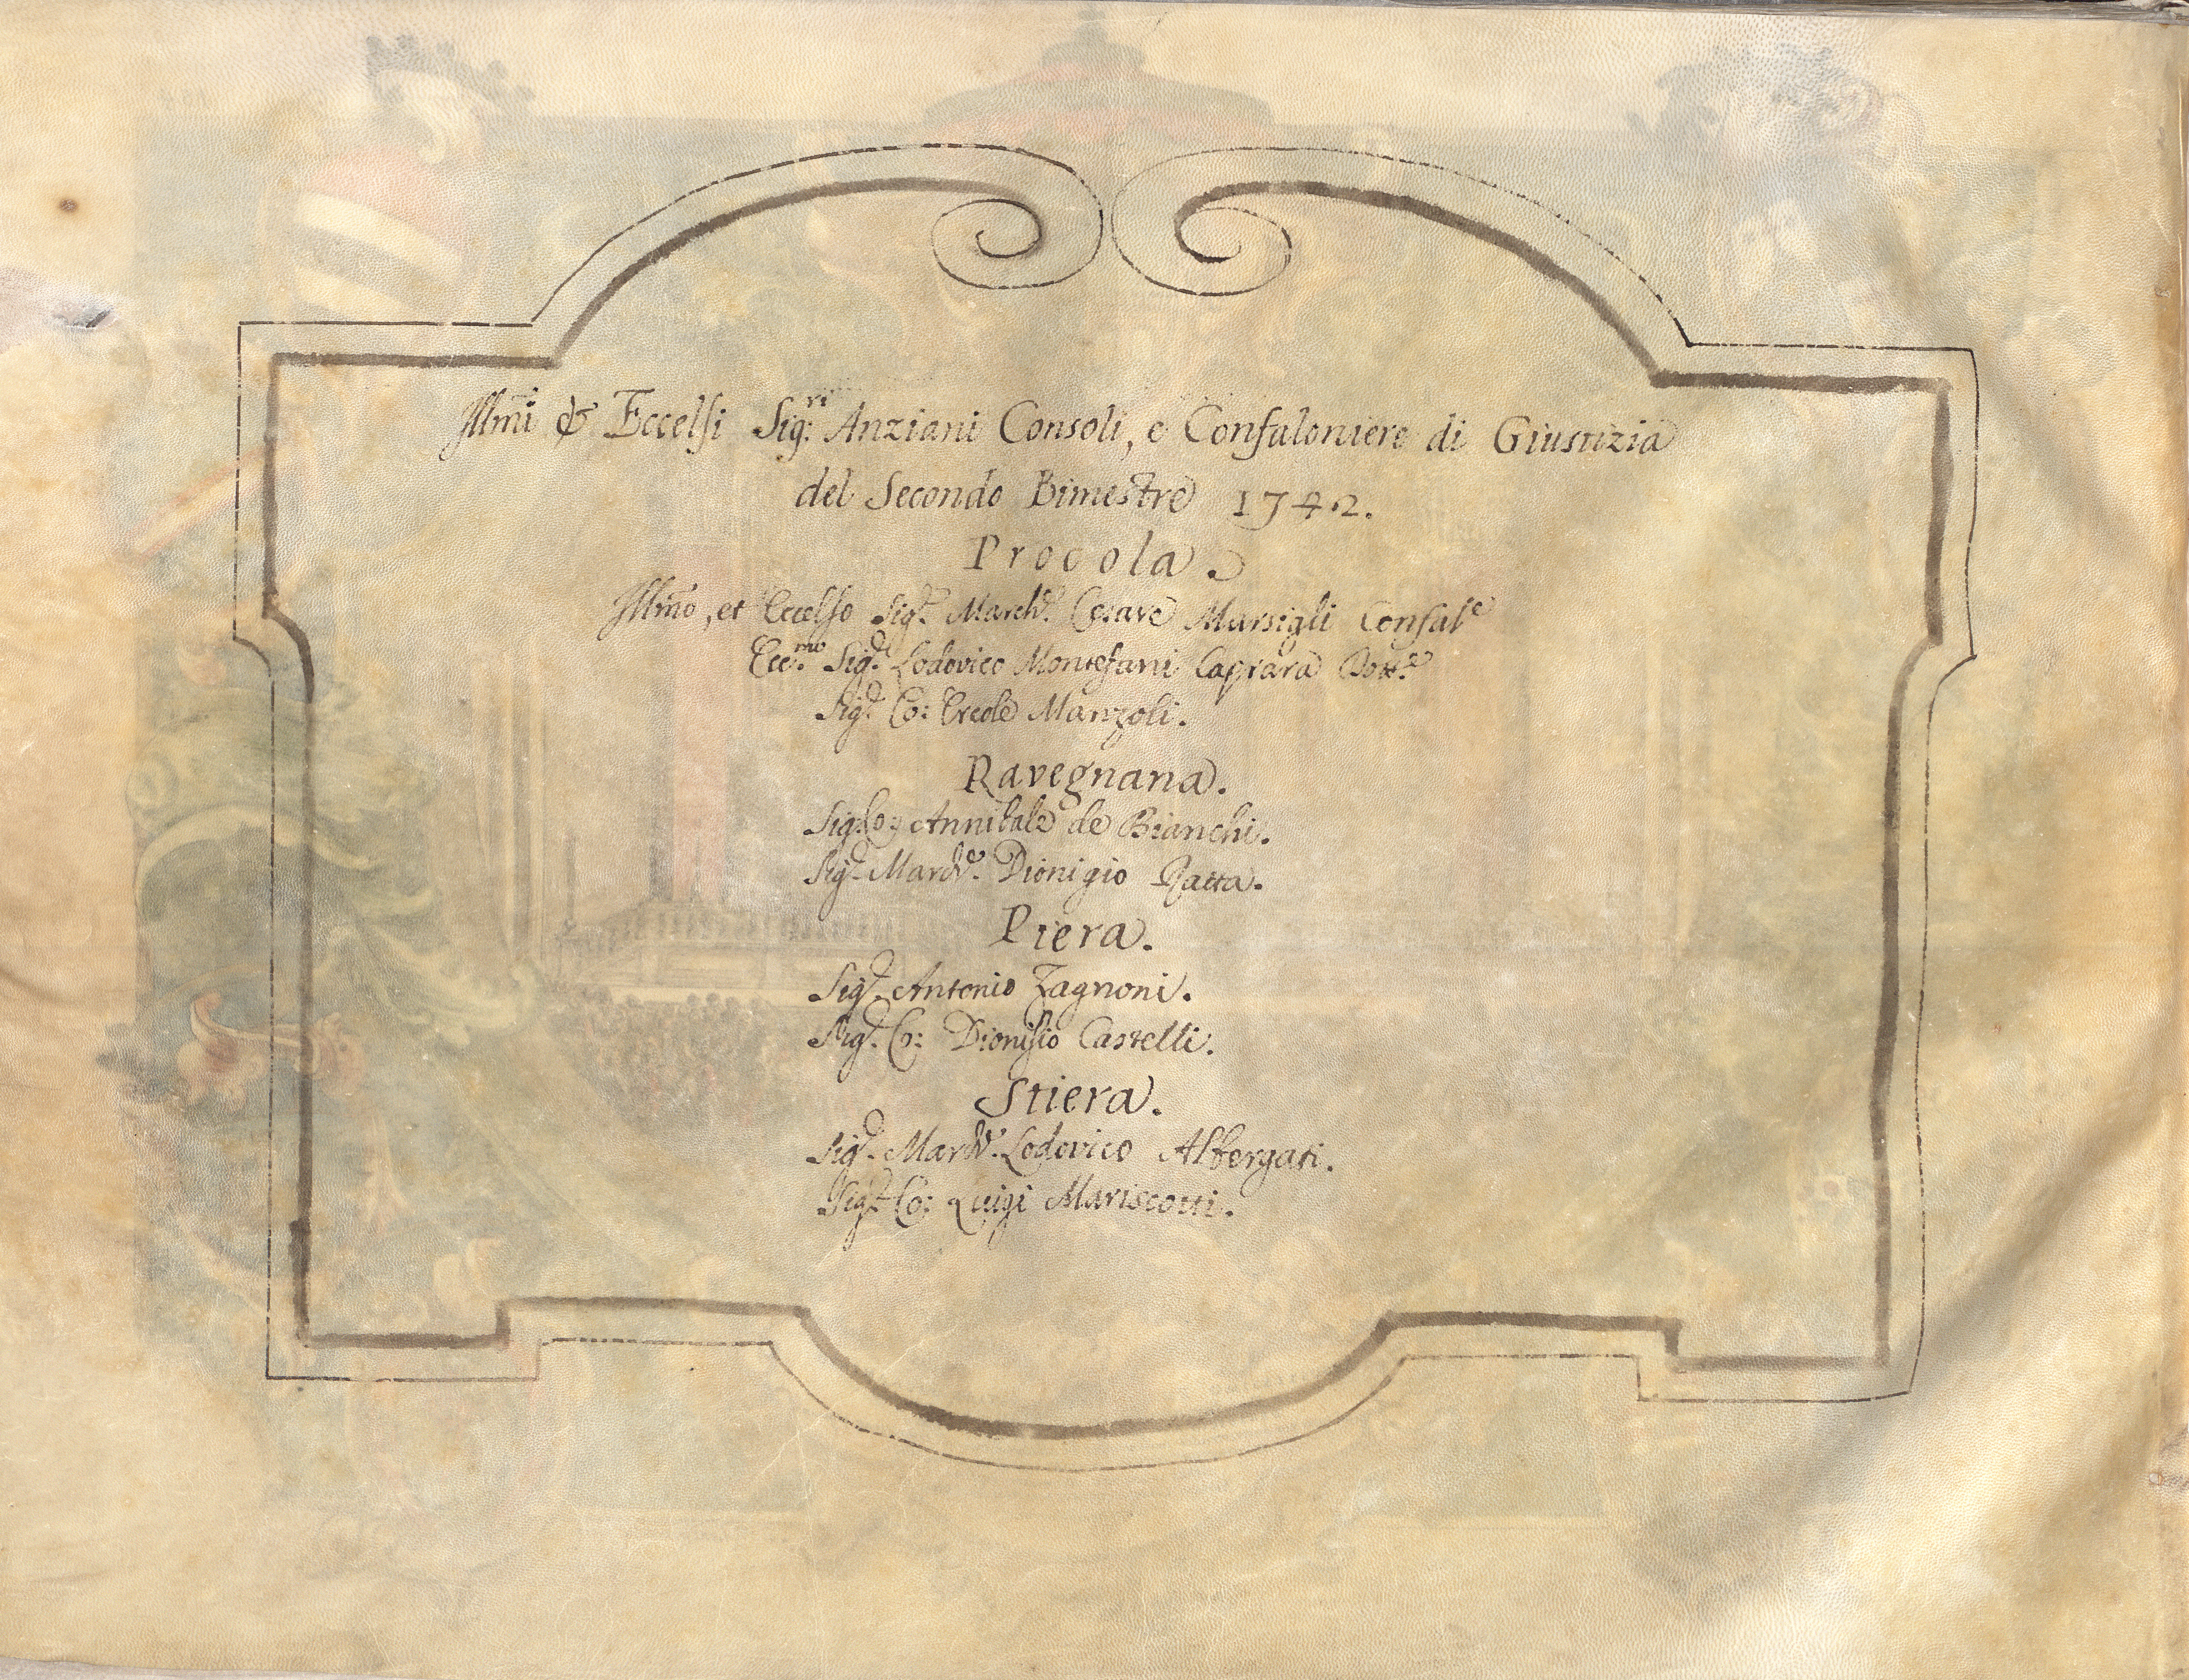 Illm̃i & Eccelsi Sig:ri Anziani Consoli, e Confaloniere di Giustizia
del Secondo Bimestre 1742.
Procola.
Illm̃o, et Eccelso Sig.r March.e Cesare Marsigli Confal.e
Ecc.mo Sig.r Lodovico Montefani Caprara Dott.e
Sig.r Co: Ercole Manzoli.
Ravegnana.
Sig. Co: Annibale de Bianchi.
Sig.r March.e Dionigio Ratta.
Piera.
Sig.r Antonio Zagnoni.
Sig.r Co: Dionisio Castelli.
Stiera.
Sig.r March.e Lodovico Albergati.
Sig.r Co: Luigi Mariscotti.